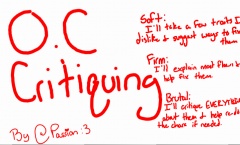 O.C
Critiquing
By @Pastion :3
Soft:
I'll take a few traits I
dislike & suggest ways to fix
them
Firm:
I'll explain most flaws &
help fix them
Brutal:
I'll critique EVERYTHING
about them & help re-do
the chara if needed.